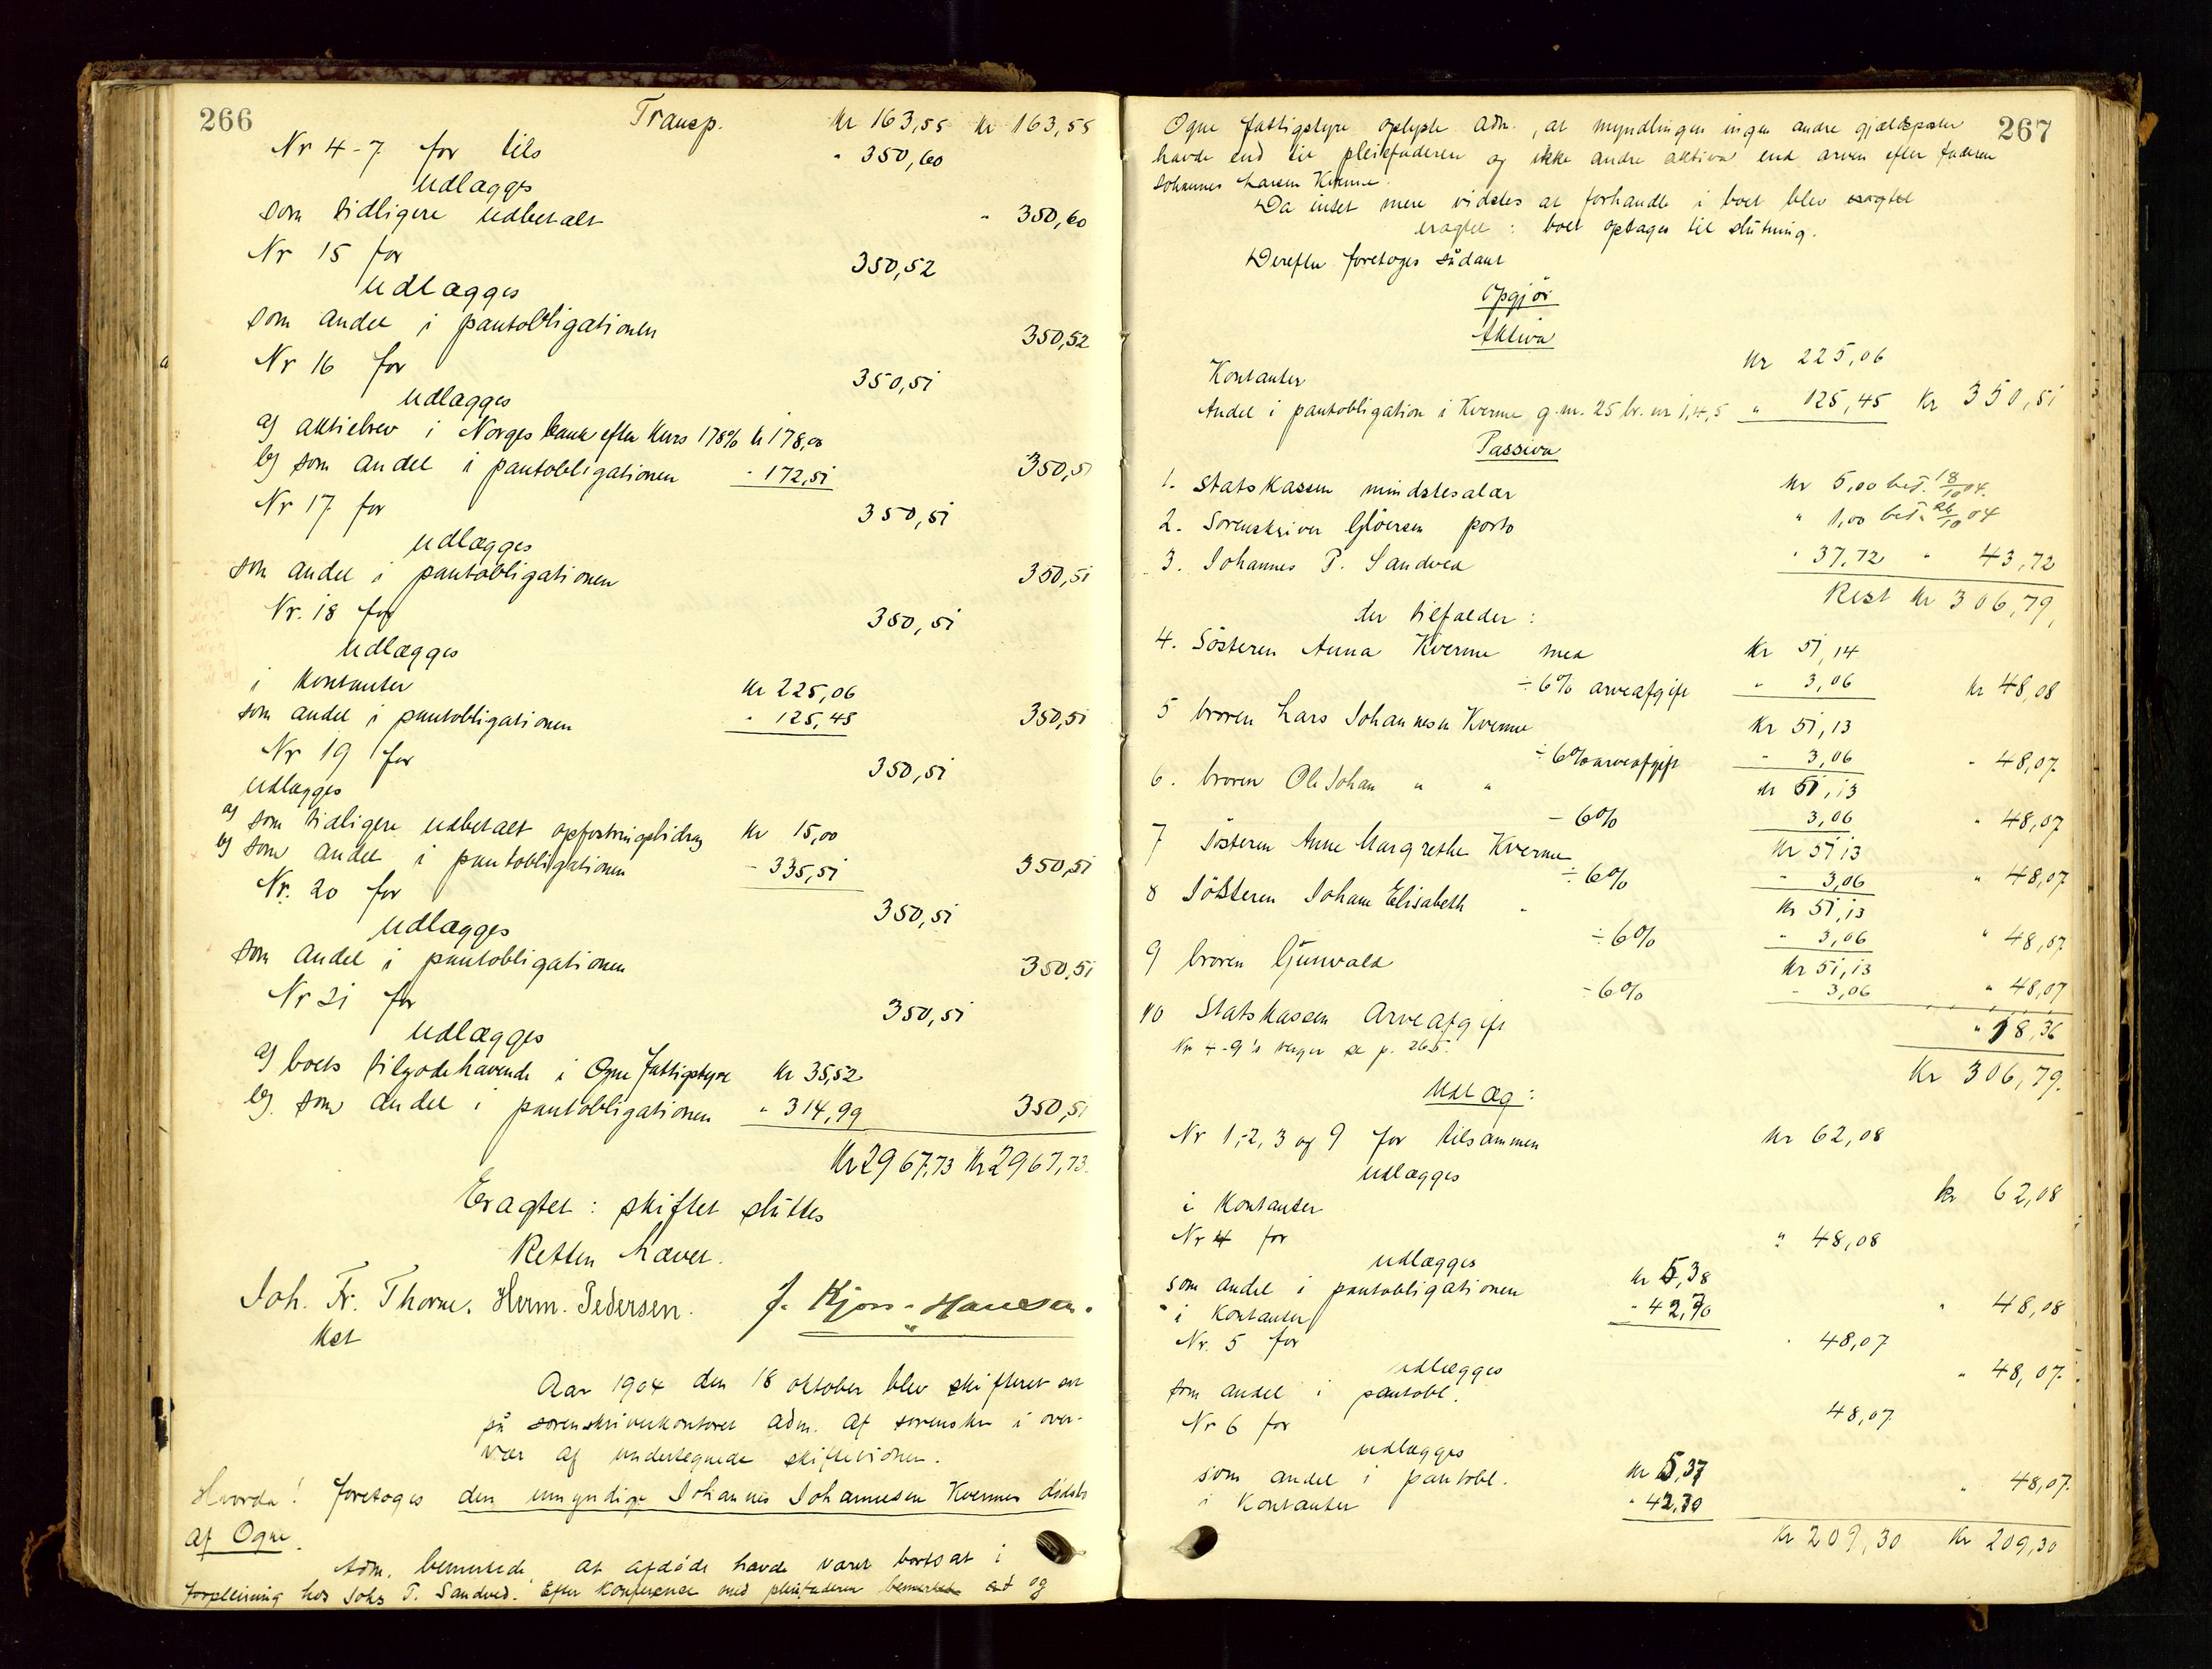 266
Transp. Kr 163,55 Kr 163,55
Nr 4-7 for tils " 350,60
udlægges
som tidligere udbetalt " 350,60
Nr 15 for 350,52
udlægges
som andel i pantobligationen 350,52
Nr 16 for 350,51
udlægges
a) aktiebrev i Norges bank efter kurs 178% kr 178,00
b) som andel i pantobligationen - 172,51 350,51
Nr 17 for 350,51
udlægges
som andel i pantobligationen 350,51
Nr. 18 for 350,51
udlægges
i kontanter kr 225,06
som andel i pantobligationen " 125,45 350,51
Nr 19 for 350,51
udlægges
a) som tidligere udbetalt opfostringsbidrag kr 15,00
b) som andel i pantobligationen - 335,51 350,51
Nr. 20 for 350,51
udlægges
som andel i pantobligationen 350,51
Nr 21 for 350,51
udlægges
a) boets tilgodehavende i Ogne fattigstyre kr 35,52
b) som andel i pantobligationen " 314,99 350,51
Kr 2967,73 Kr 2967,73
Eragtet: skiftet sluttes
Retten hævet.
Joh. Fr. Thorne. Herm. Pedersen. J. Kjos-Hansen.
kst
Aar 1904 den 18 oktober blev skifteret sat
på sorenskriverkontoret adm. af sorenskr i over-
vær af undertegnede skiftevidner.
Hvorda! foretoges den umyndige Johannes Johannesen Kvermes dødsbo
af Ogne.
Adm. bemerkede, at afdøde havde været bortsat i
forpleining hos Johs P. Sandved. Efter konference med pleiefaderen bemerket at og
267
Ogne fattigstyre oplyste adm., at myndlingen ingen andre gjældsposter
havde end til pleiefaderen og ikke andre aktiva end arven efter faderen
Johannes Larsen Kverme.
Da intet mere vidstes at forhandle i boet blev eragtet
eragtet: boet optages til slutning.
Derefter foretoges sådant
Opgjør
Aktiva
Kontanter Kr 225,06
Andel i pantobligation i Kverme g.nr. 25 br. nr 1,4,5 " 125,45 Kr 350,51
Passiva
1. Statskassen mindstesalær Kr 5,00 bet. 18/10 04.
2. Sorenskriver Gløersen porto " 1,00 bet. 26/10 04
3. Johannes P. Sandved " 37,72 " 43,72
Rest Kr 306,79,
der tilfalder:
4. Søsteren Anna Kverme med Kr 51,14
÷ 6% arveafgift " 3,06 Kr 48,08
5 broren Lars Johannesen Kverme Kr 51,13
÷ 6% arveafgift " 3,06 " 48,07
6. broren Ole Johan " " Kr 51,13
÷ 6% 3,06 " 48,07
7 Søsteren Anne Margrethe Kverme Kr 51,13
÷ 6% " 3,06 " 48,07
8 Søsteren Johane Elisabeth " Kr 51,13
÷ 6% " 3,06 " 48,07
9 broren Gunvald Kr 51,13
÷ 6% " 3,06 " 48,07
10 Statskassen Arveafgift " 18,36
Nr 4-9's verger se p. 265.
Kr 306,79.
Udlæg:
Nr 1, 2, 3 og 9 for tilsammen Kr 62,08
udlægges
i kontanter Kr 62,08
Nr 4 for " 48,08
udlægges
som andel i pantobligationen Kr 5,38
" i kontanter " 42,70 " 48,08
Nr. 5 for " 48,07
udlægges
som andel i pantobl. " 48,07.
Nr 6 for 48,07
udlægges
som andel i pantobl. Kr 5,37
i kontanter " 42,70 " 48,07.
Kr 209,30 Kr 209,30